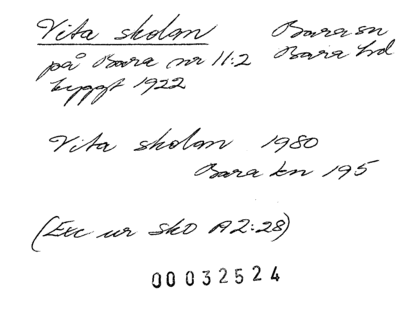 Vita skolan Bara sn
på Bara nr 11:2 Bara hd
byggt 1922
Vita skolan 1980
Bara kn 195
(Exc ur SkO A2:28)
00032524